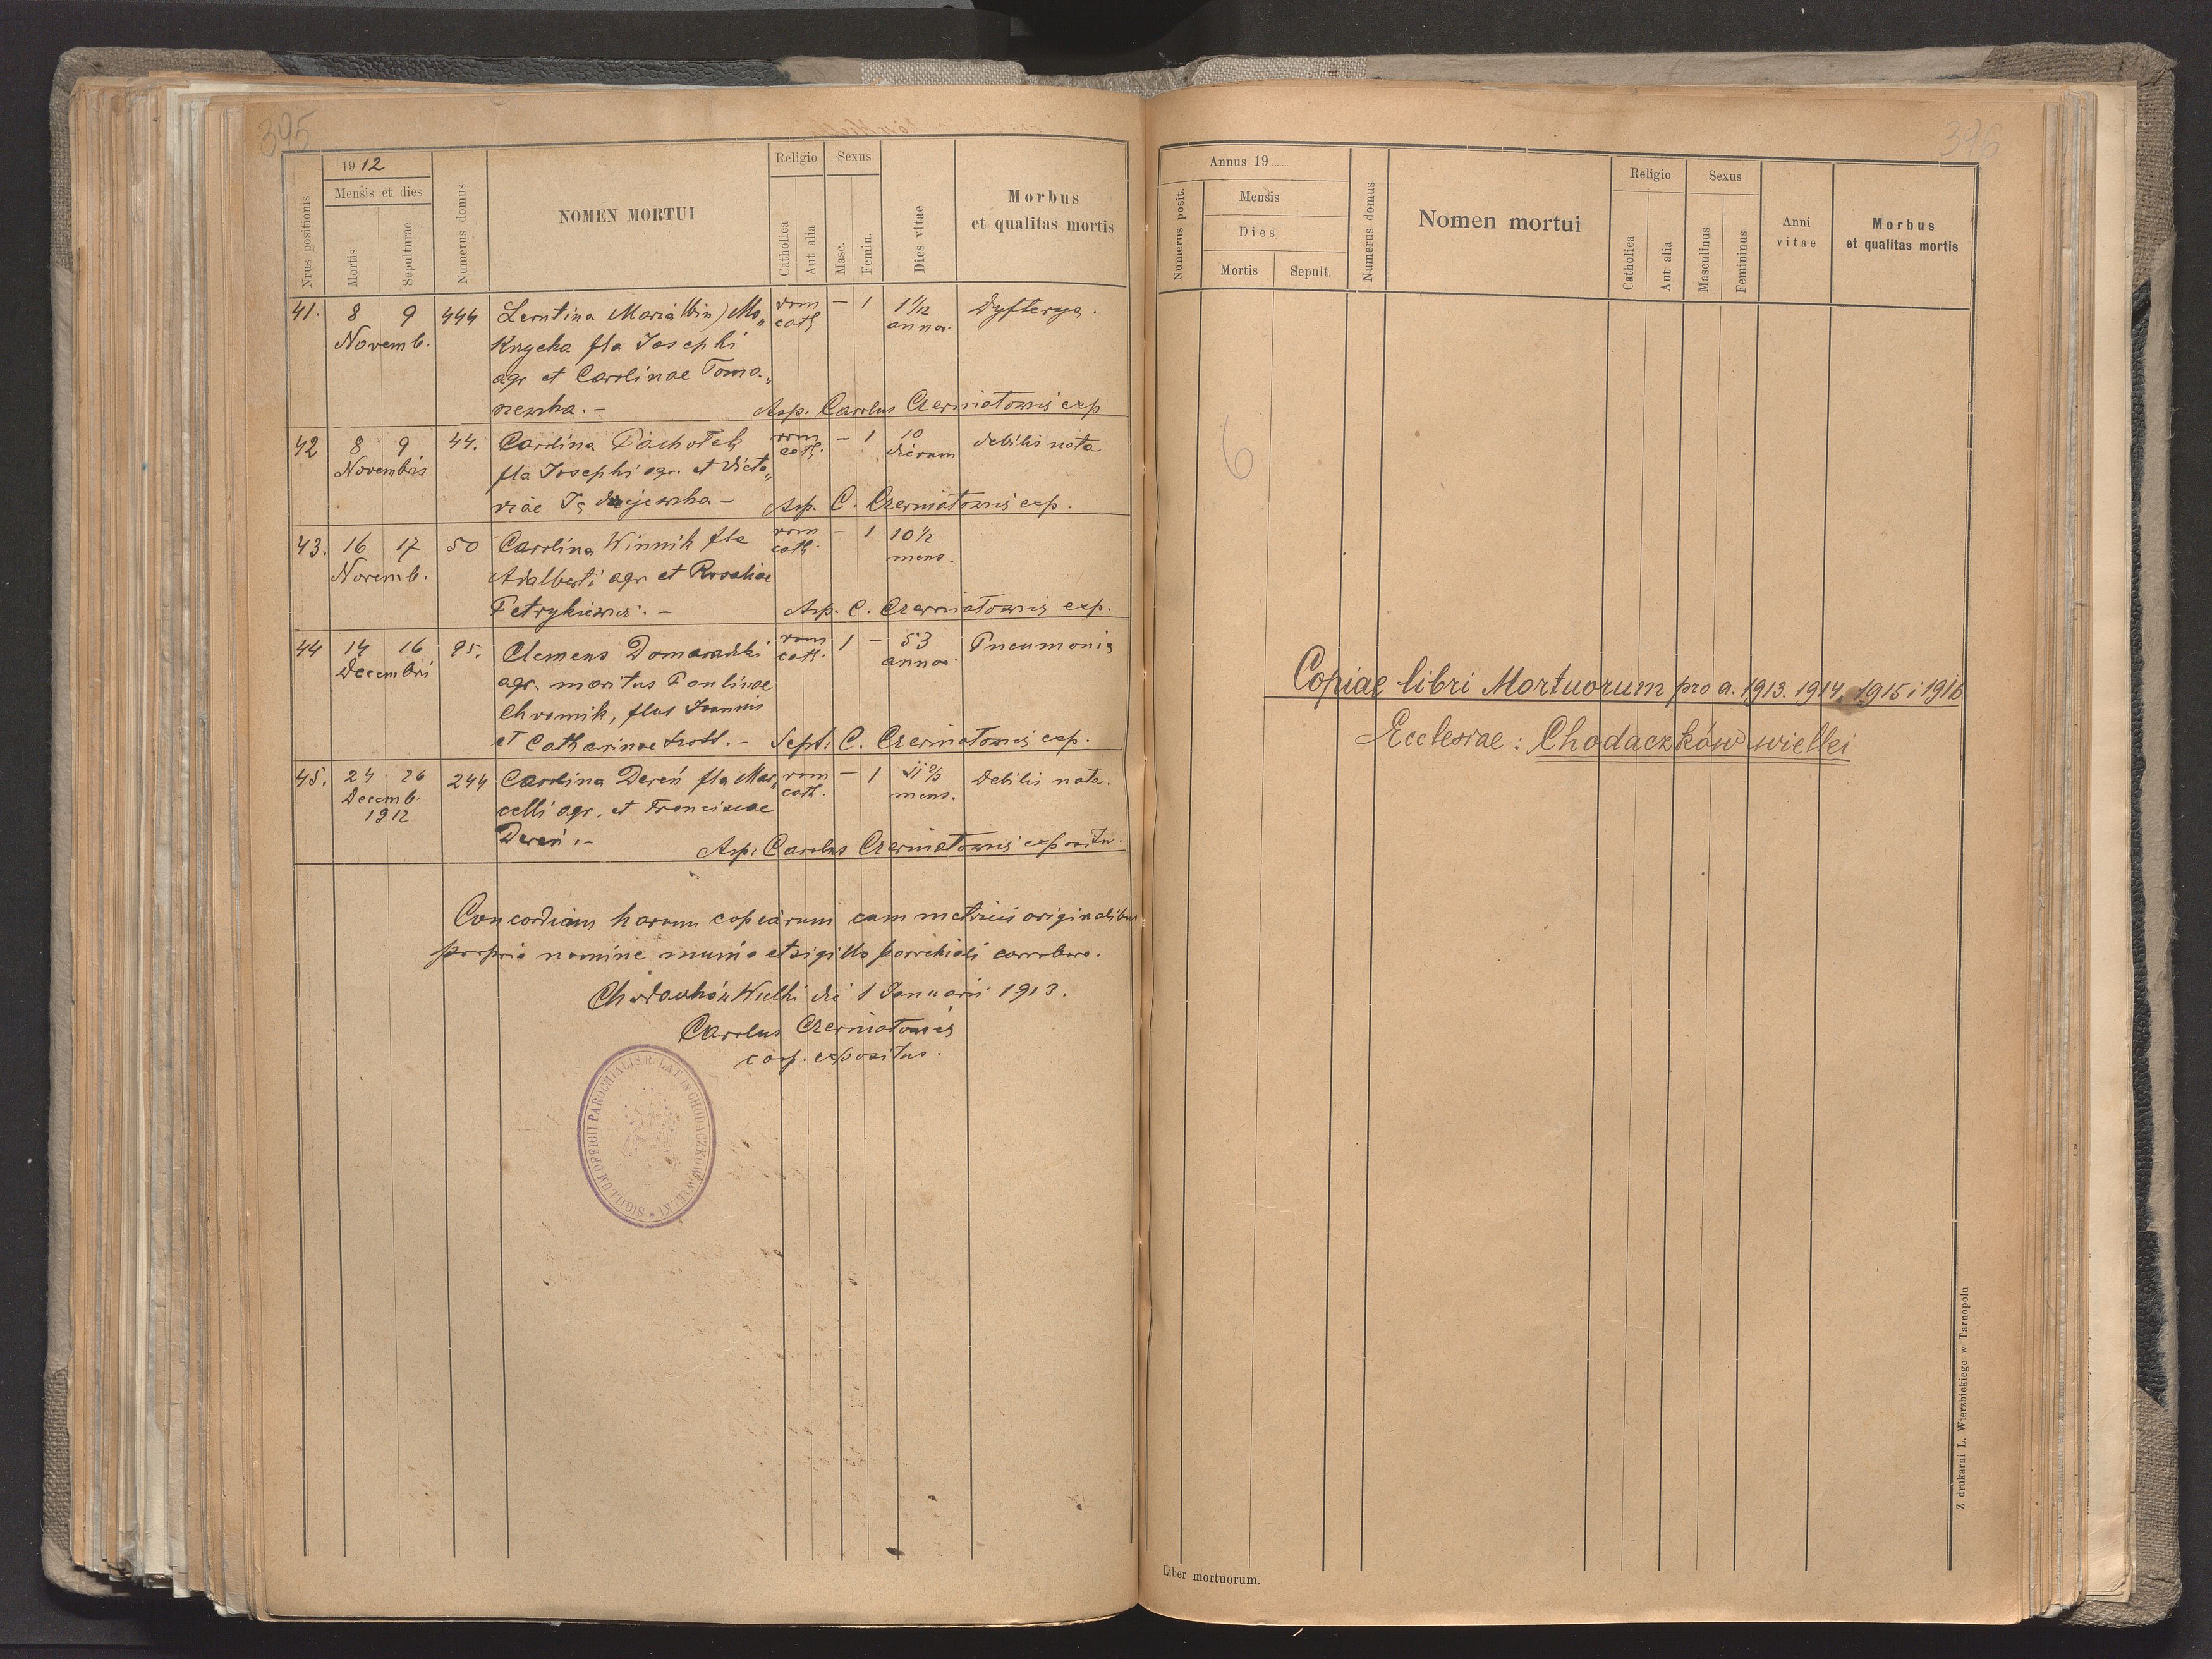 395
1912
Mensis et dies
Nrus positionis
Mortis
Sepulturae
Numerus domus
NOMEN MORTUI
Religio
Catholica
Aut alia
Sexus
Masc.
Femin.
Dies vitae
Morbus
et qualitas mortis
41. 8 9 444 Leontina Maria (bin) Mo„ rom — 1 1 1/12 Dyfterya.
Novemb. Krzycha fla Josephi cath annor.
agr et Carolinae Toma„
szewska. — Asp. Carolus Czerniatowicz exp
42 8 9 44. Carolina Pachołek rom — 1 10 debilis nata
Novembris fla Josephi agr. et Victo„ cath. dierum
riae Jędrzejewska — Asp. C. Czerniatowicz exp.
43. 16 17 50 Carolina Winnik fla rom — 1 10 1/2
Novemb. Adalberti agr et Rosaliae cath. mens.
Petrykiewicz. — Asp. C. Czerniatowicz exp.
44 14 16 95. Clemens Domaradzki rom 1 — 53 Pneumonia
Decembris agr. maritus Paulinae cath. annor.
Chromik, flus Joannis
et Catharinae — Sept: C. Czerniatowicz exp.
45. 24 26 244 Carolina Dereń fla Mar„ rom — 1 mens. Debilis nata.
Decemb. celli agr. et Franciscae cath.
1912 Dereń. — Asp. Carolus Czerniatowicz exposito.
Concordiam harum copiarum cum metricis originalibus
proprio nomine munio et sigillo parochiali corroboro.
Chodaczków Wielki die 1 Januarii 1913.
Carolus Czerniatowicz
coop. expositus.
SIGILLUM OFFICII PAROCHIALIS R. LAT. IN CHODACZKÓW WIELKI
396
Annus 19
Numerus posit.
Mensis
Dies
Mortis Sepult.
Numerus domus
Nomen mortui
Religio
Catholica
Aut alia
Sexus
Masculinus
Femininus
Anni
vitae
Morbus
et qualitas mortis
6
Copiae libri Mortuorum pro a. 1913. 1914. 1915 i 1916
Ecclesiae: Chodaczków wielki
Z drukarni L. Wierzbickiego w Tarnopolu
Liber mortuorum.